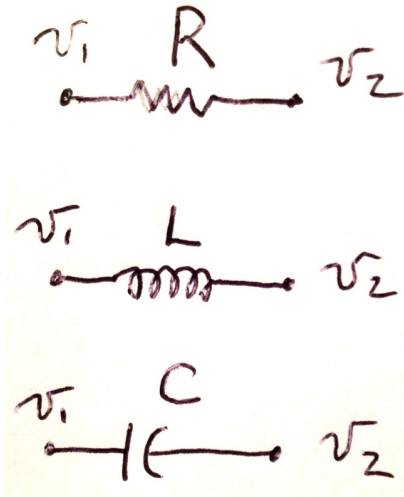 v₁ R v₂
v₁ L v₂
v₁ C v₂